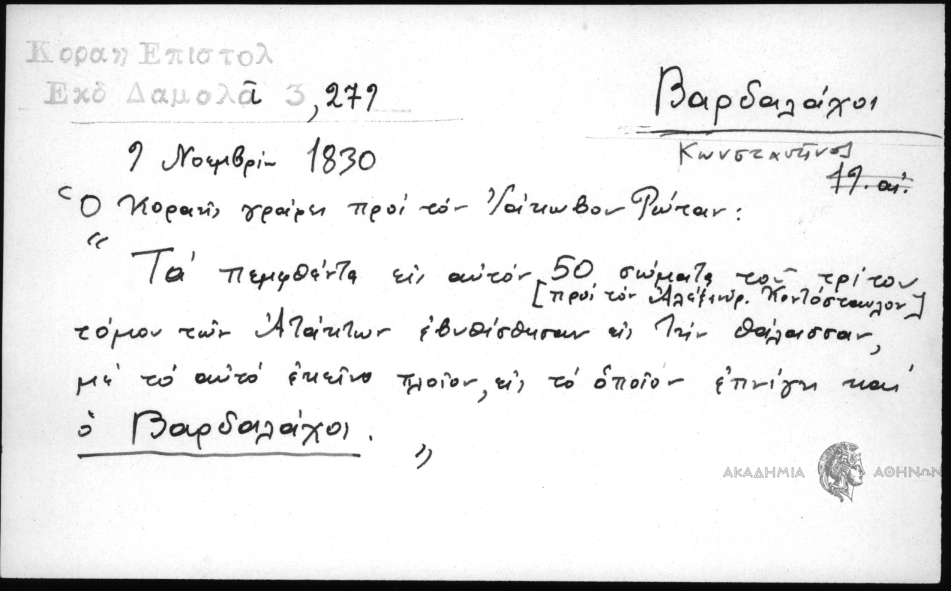 Κοραη Επιστολ
Εκδ Δαμολᾶ 3, 279
Βαρδαλάχος
Κωνσταντῖνος
19. αἰ.
9 Νοεμβρίου 1830
Ὁ Κοραῆς γράφει πρὸς τὸν Ἰάκωβον Ρώταν:
“ Τὰ πεμφθέντα εἰς αὐτὸν 50 σώματα τοῦ τρίτου
[πρὸς τὸν Ἀλέξανδρ. Κοντόσταυλον]
τόμου τῶν Ἀτάκτων ἐβυθίσθησαν εἰς τὴν θάλασσαν,
μὲ τὸ αὐτὸ ἐκεῖνο πλοῖον, εἰς τὸ ὁποῖον ἐπνίγη καὶ
ὁ Βαρδαλάχος. „
ΑΚΑΔΗΜΙΑ ΑΘΗΝΩΝ